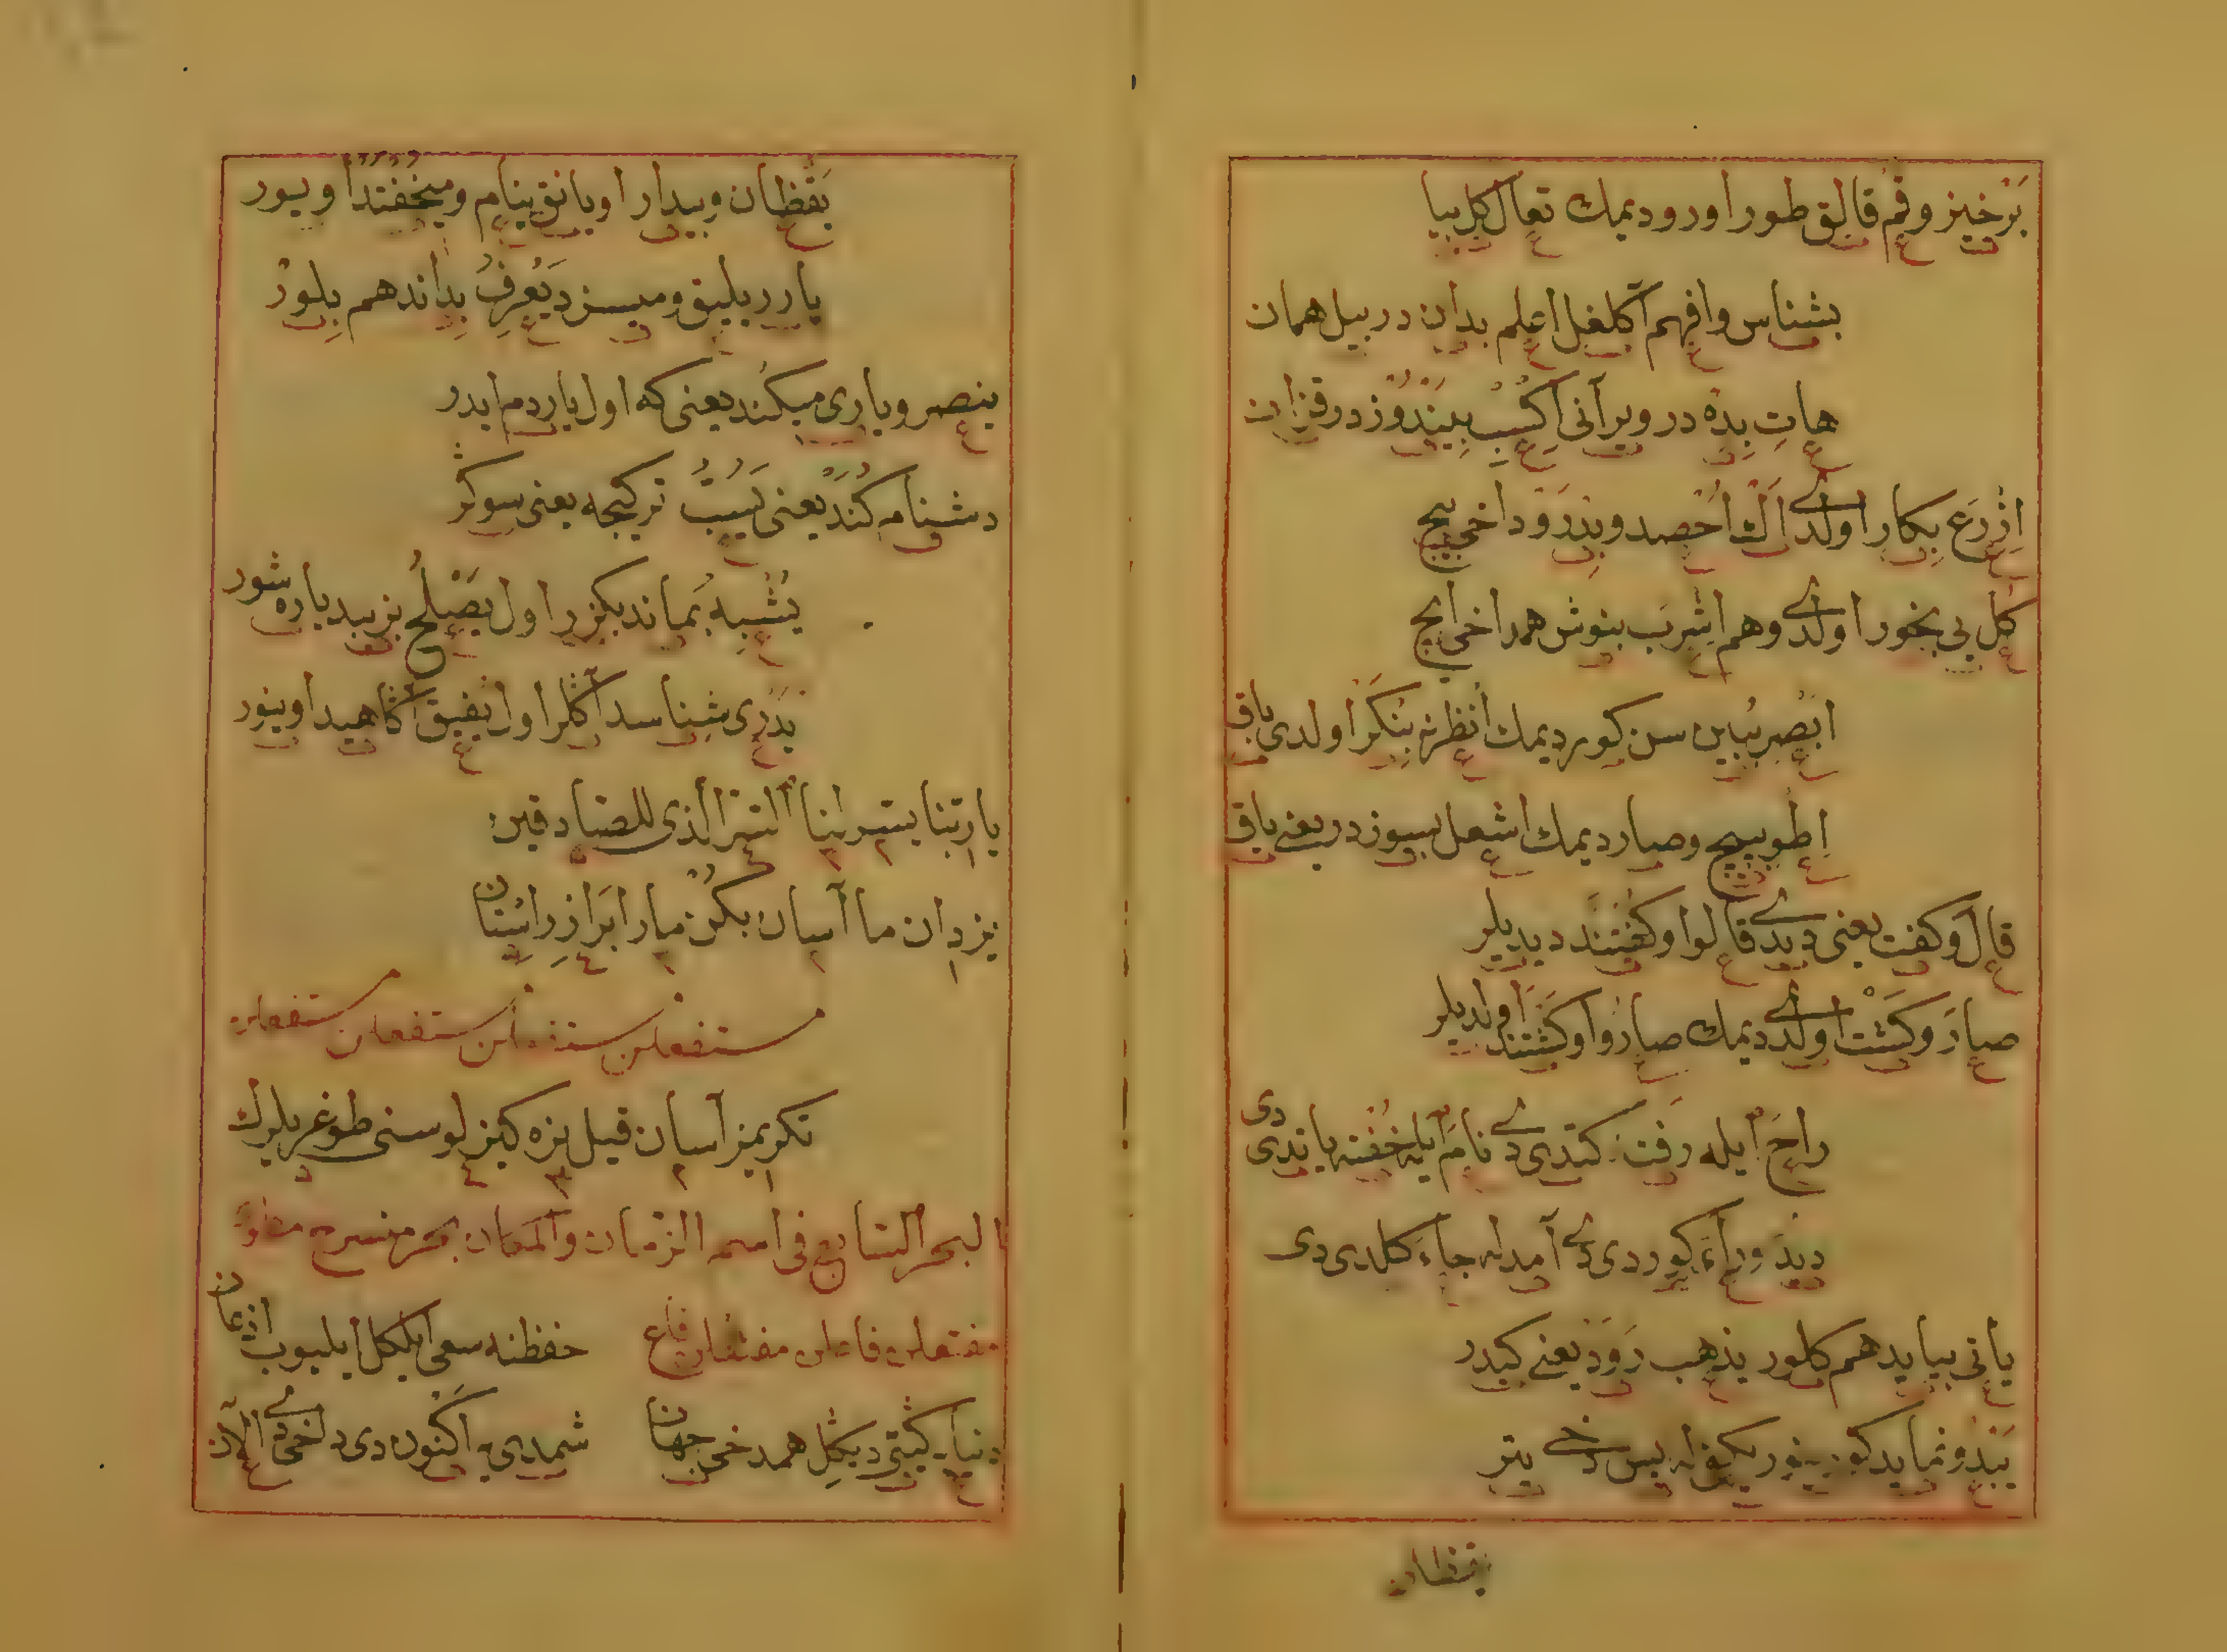 برخیز و قم قالق طور اورو دیمك تعال كل بیا
بشناس وافهم آكلغل اعلم بدان در بیل همان
هات بده در ویر آنی اكسب بیندوز در قزان
ازرع بكار اولدی اك احصد و بدرو داخی بیچ
كل یی بخور اولدی وهم اشرب بنوش همداخی ایچ
ابصر ببین سن كور دیمك انظر بنكر اولدی باق
اطو بپیچ وصار دیمك اشعل بسوز در یعنی یاق
قال و كفت یعنی دیدی قالوا و كفتند دیدیلر
صار و كشت اولدی دیمك صاروا و كشتند اولدیلر
راح ایله رفت كتدی دی نام ایله خفته یاتدی دی
دید و رای كوردی دی آمد له جاء كلدی دی
یاتی بیاید هم كلور یذهب رود یعنی كیدر
یبدو نماید كورینور یكفی له بس دخی یتر
یقظان
یقظان وبیدار اویانق ینام ومیخفتد اویور
یارر یلیق ومیسزد یعرف بداند هم بلور
ینصر ویاری میكند یعنی كه اول یاردم ایدر
دشنامه كند یعنی یسب تركیجه یعنی سوكر
یشبه بماند بكزر اول یصلح بزیبد یاره شور
یدری شناسد آكلر اول یفیق آكاهید اوینور
یا ربنا یسر لنا السر الذی للصادقین
یزدان ما آسان بكن ما را براز راستان
مستفعلن مستفعلن مستفعلن مستفعلن
تكریمز آسان قیل بزه كیزلوسنی طوغریلرك
البحر السابع فی اسم الزمان والمكان بحر منسرح مطوی
مفتعلن فاعلن مفتعلن فاع حفظنه سعی ایلكل ایلیوب
دنیا كیتی دیكل همدخی جهان شمدی یه اكنون دی دخی دی الآن